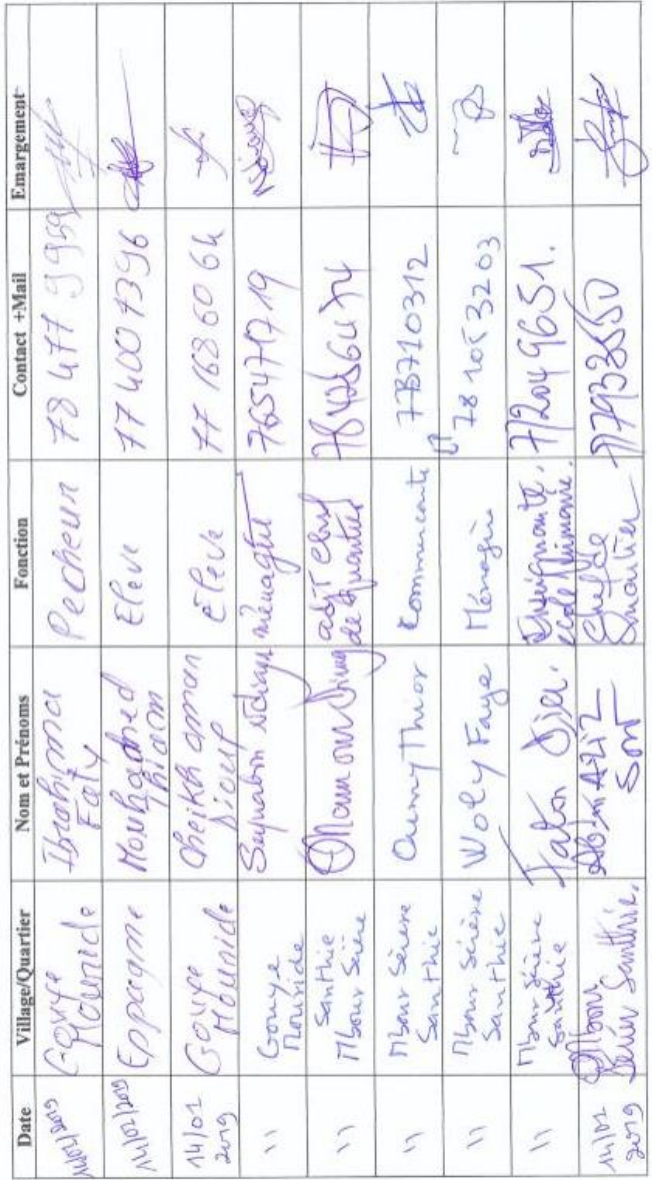 Date Village/Quartier Nom et Prénoms Fonction Contact +Mail Emargement
14/02/2019 Gouye Mouride Ibrahima Faty Pecheur 78 477 9959
14/02/2019 Eppagne Mouhamed Eleve 77 400 7396
14/02 2019 Gouye Mouride Cheikh omar Diouf Eleve 77 168 60 64
" Gouye Mouride Seynabou ménagère 765471719
" Santhie Mbour Sérère adjt chef de quartier
" Mbour Sérère Santhie Oumy Thior Commercante
" Mbour Sérère Santhie Woly Faye Ménagère 78 105 3203
" Mbour Sérère Santhie Fatou Enseignante école primaire. 772049651.
14/02 2019 Mbour Sérère Santhie. Abdou AZIZ Chef de quartier